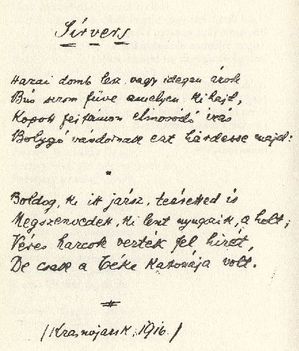 Sírvers
Hazai domb lesz vagy idegen árok
Bús sirom füve amelyen kihajt,
Kopott fejfámon elmosódó írás
Bolygó vándornak ezt hirdesse majd:
Boldog, ki itt jársz, teéretted is
Megszenvedett, ki lent nyugszik, a holt;
Véres harcok verték fel hirét,
De csak a Béke Katonája volt.
/Krasnojarsk, 1916./